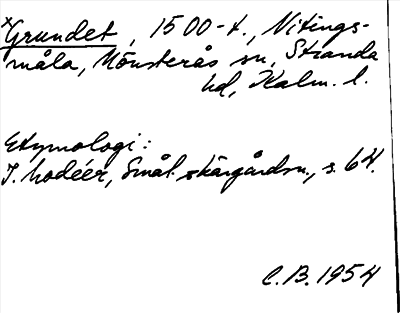 *Grundet, 1500-t., Nitings-
måla, Mönsterås sn, Stranda
hd, Kalm. l.
Etymologi:
I. Modéer, Smål. skärgårdsn., s. 64.
C.B. 1954